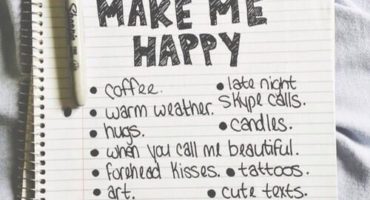 MAKE ME
HAPPY
• coffee. • late night
skype calls.
• warm weather.
• hugs. • candles.
• when you call me beautiful.
• forehead kisses. • tattoos.
• art. • cute texts.